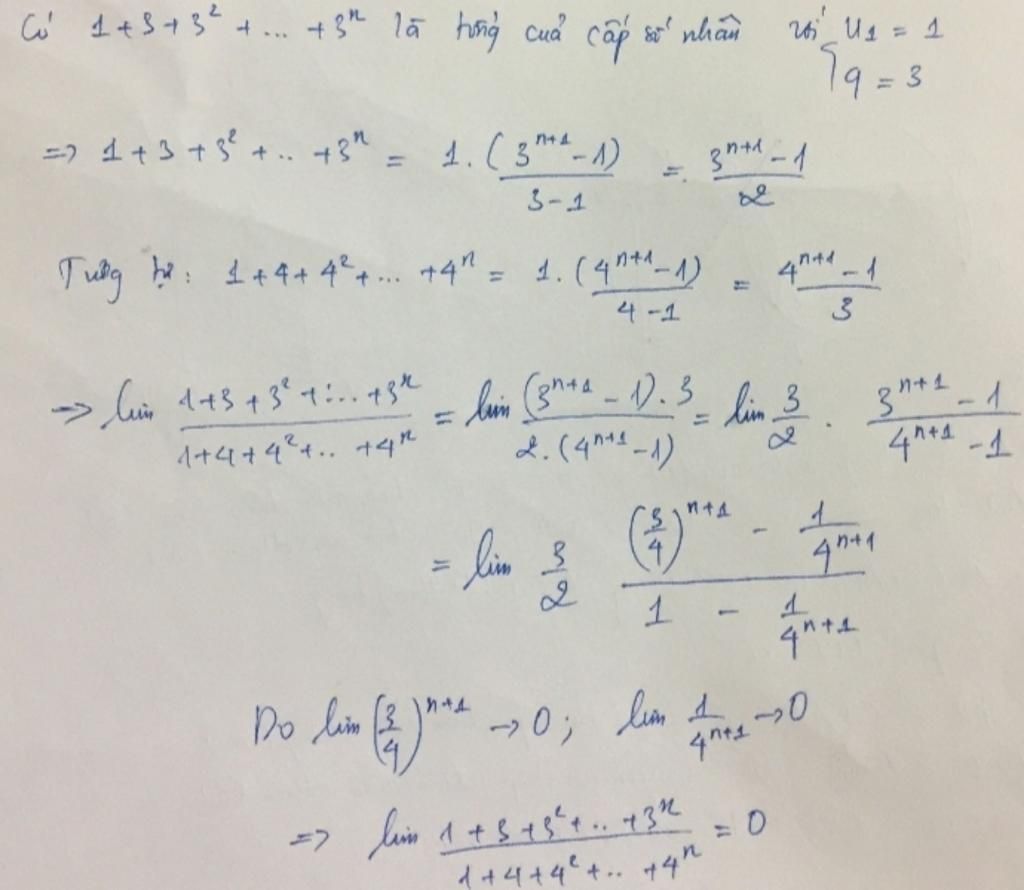 Có 1+3+3² + ... +3ⁿ là tổng của cấp số nhân với { u₁ = 1
q = 3
=> 1+3+3² + .. +3ⁿ = 1.(3ⁿ⁺¹-1)/(3-1) = (3ⁿ⁺¹-1)/2
Tương tự: 1+4+4²+... +4ⁿ = 1.(4ⁿ⁺¹-1)/(4-1) = (4ⁿ⁺¹-1)/3
=> lim (1+3+3²+... +3ⁿ)/(1+4+4²+.. +4ⁿ) = lim ((3ⁿ⁺¹-1).3)/(2.(4ⁿ⁺¹-1)) = lim 3/2 . (3ⁿ⁺¹-1)/(4ⁿ⁺¹-1)
= lim 3/2 ((3/4)ⁿ⁺¹ - 1/4ⁿ⁺¹)/(1 - 1/4ⁿ⁺¹)
Do lim (3/4)ⁿ⁺¹ → 0; lim 1/4ⁿ⁺¹ → 0
=> lim (1+3+3²+.. +3ⁿ)/(1+4+4²+.. +4ⁿ) = 0